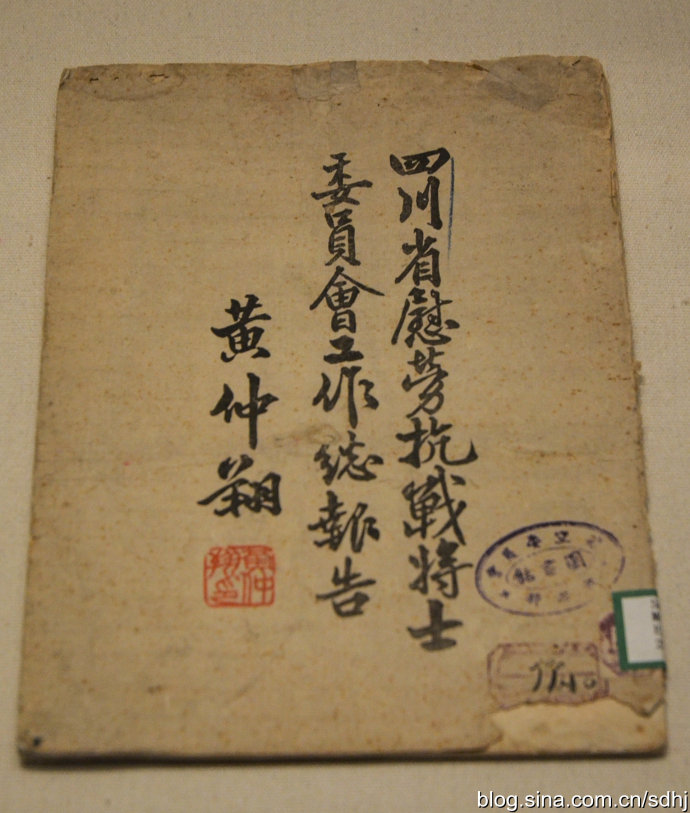 四川省慰劳抗戰將士
委員會工作總報告
黃仲翔
黃仲翔印
圖書館
blog.sina.com.cn/sdhj